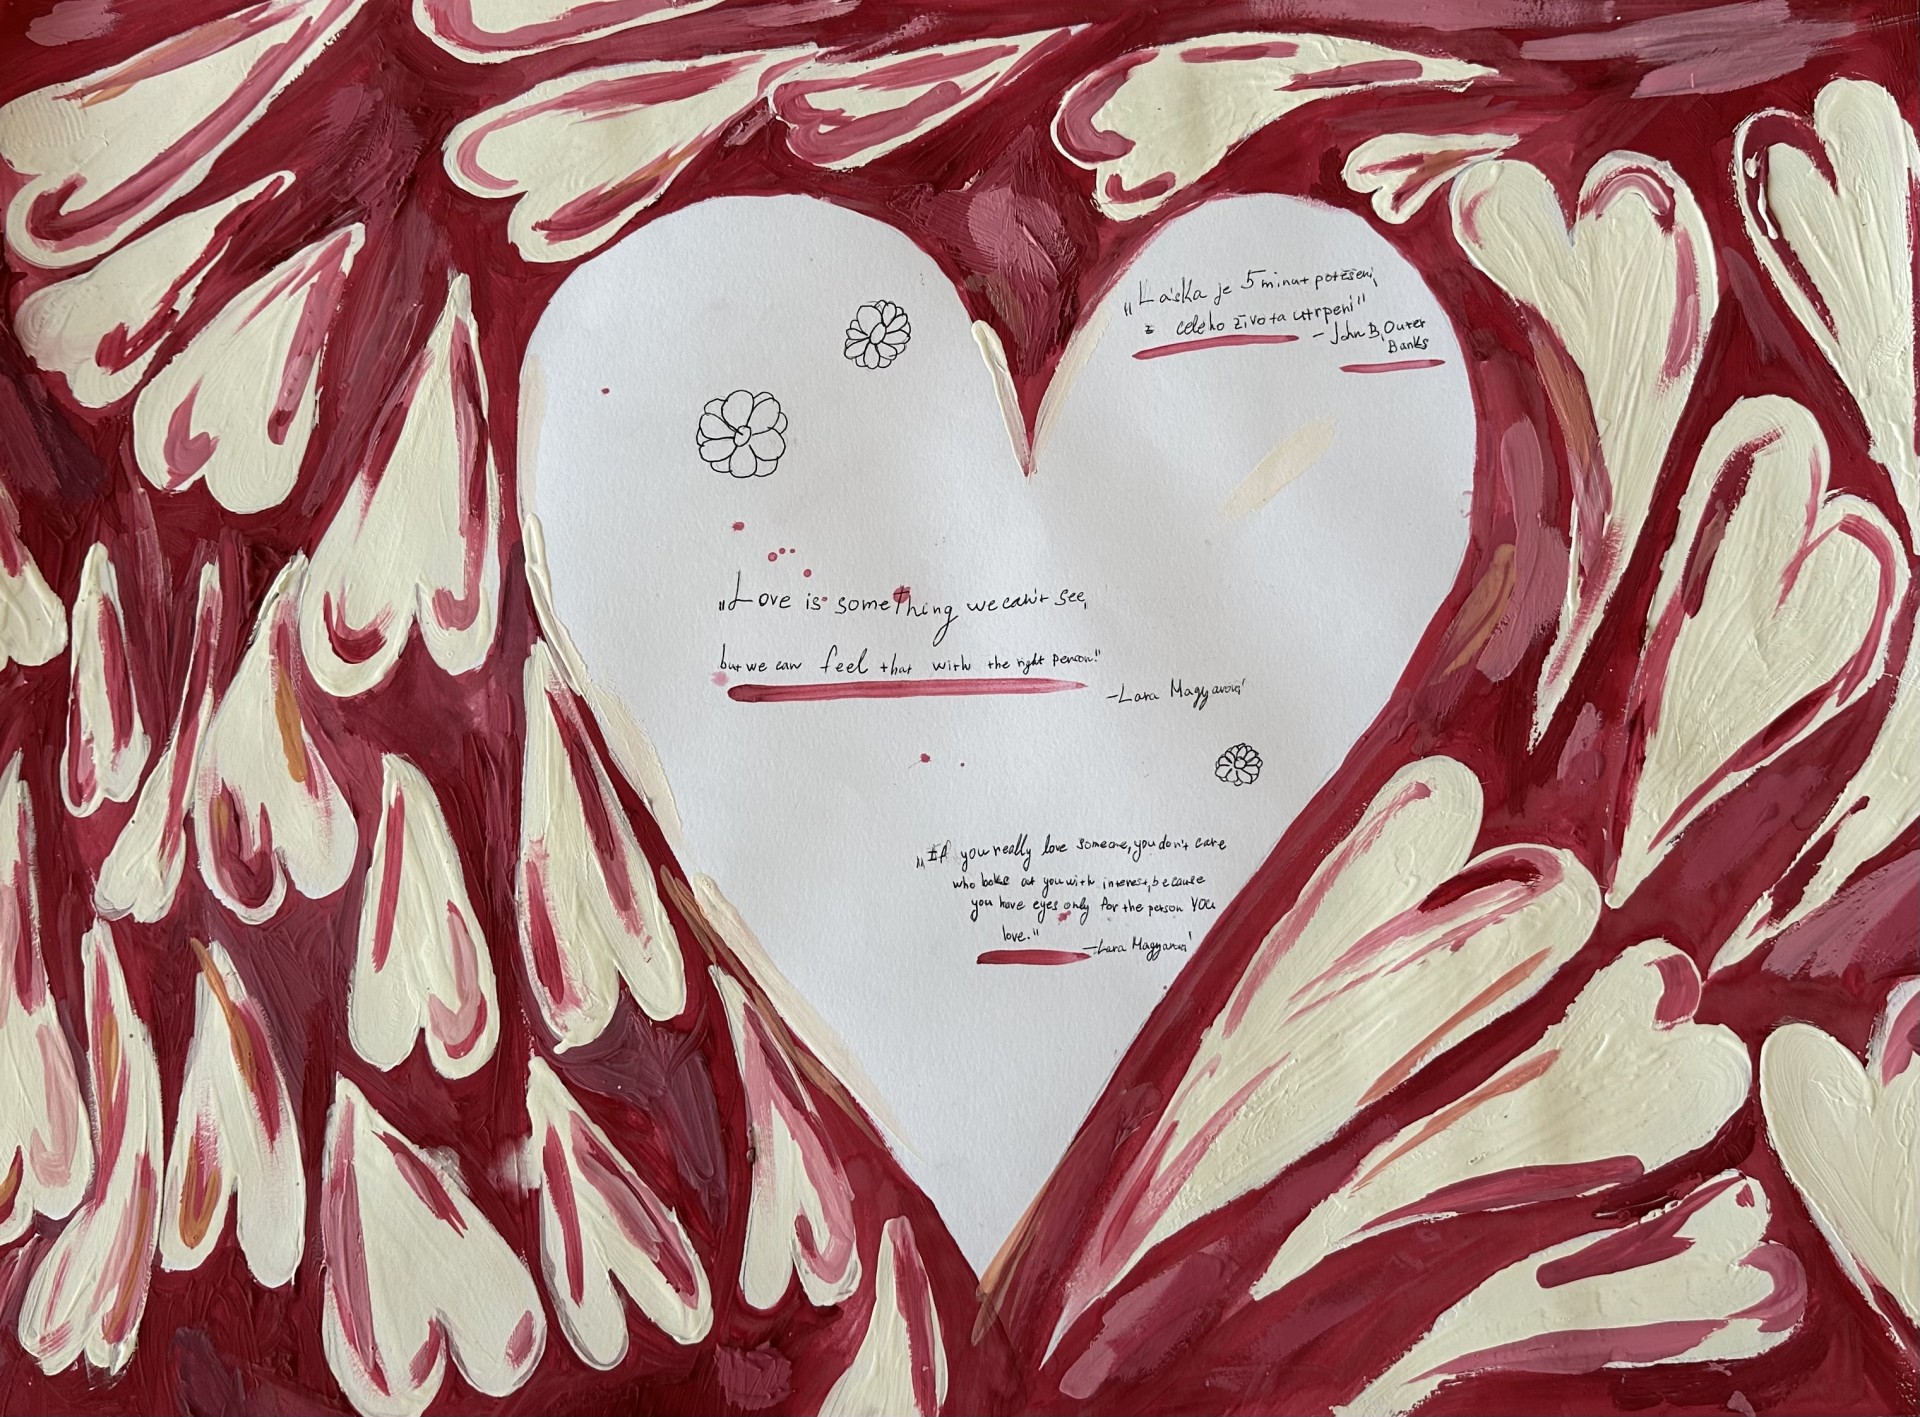 „Láska je 5 minut potěšení,
z celeho života utrpení"
- John B, Outer
Banks
„Love is something we can't see,
but we can feel that with the right person."
-Lara Magyarová
„If you really love someone, you don't care
who looks at you with interest, because
you have eyes only for the person YOU
love."
-Lara Magyarová